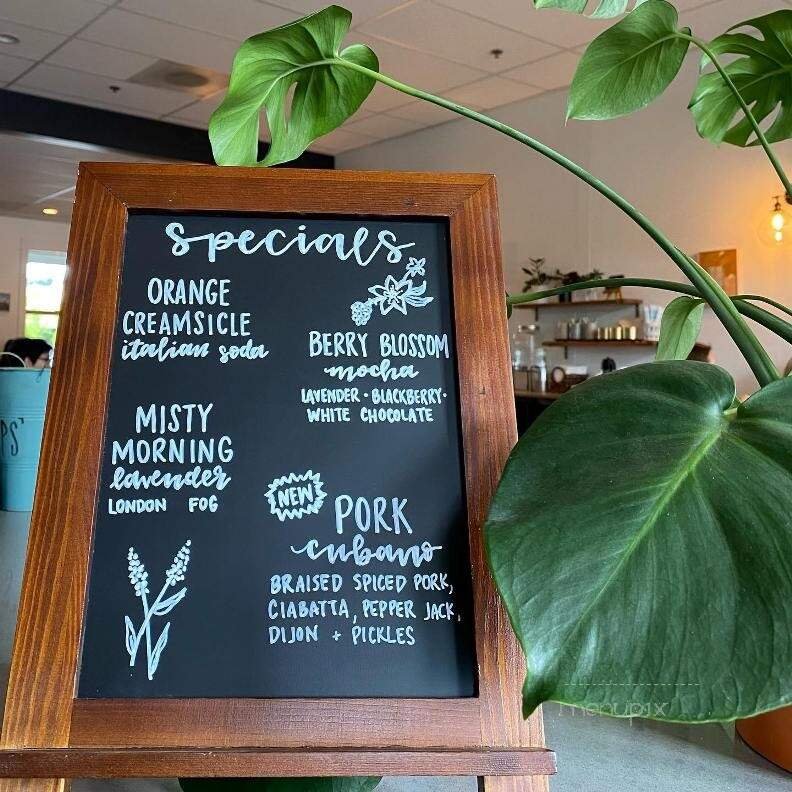 specials
ORANGE
CREAMSICLE
italian soda
BERRY BLOSSOM
mocha
LAVENDER · BLACKBERRY ·
WHITE CHOCOLATE
MISTY
MORNING
lavender
LONDON FOG
NEW
PORK
cubano
BRAISED SPICED PORK,
CIABATTA, PEPPER JACK,
DIJON + PICKLES
PS'
menupix